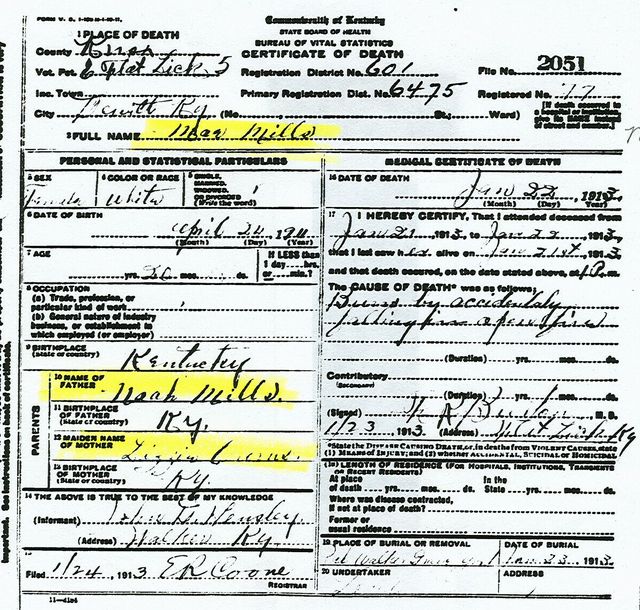 Commonwealth of Kentucky
STATE BOARD OF HEALTH
BUREAU OF VITAL STATISTICS
CERTIFICATE OF DEATH
1 PLACE OF DEATH
County Knox
Vot. Pct. 6 Flat Lick 5 Registration District No. 601 File No. 2051
Inc. Town Primary Registration Dist. No. 6475 Registered No. 17
City Dewitt Ky (No. St.; Ward)
[If death occurred in a hospital or institution give its NAME instead of street and number.]
2 FULL NAME Mae Mills
PERSONAL AND STATISTICAL PARTICULARS
3 SEX
Female
4 COLOR OR RACE
White
5 SINGLE, MARRIED, WIDOWED, OR DIVORCED (Write the word)
6 DATE OF BIRTH
April 24, 1911
(Month) (Day) (Year)
7 AGE
yrs. mos. ds.
If LESS than 1 day....hrs. or....min.?
8 OCCUPATION
(a) Trade, profession, or particular kind of work
(b) General nature of industry business, or establishment in which employed (or employer)
9 BIRTHPLACE
(State or country)
Kentucky
PARENTS
10 NAME OF FATHER
Noah Mills.
11 BIRTHPLACE OF FATHER
(State or country)
Ky.
12 MAIDEN NAME OF MOTHER
Lizzie
13 BIRTHPLACE OF MOTHER
(State or country)
Ky.
14 THE ABOVE IS TRUE TO THE BEST OF MY KNOWLEDGE
(Informant) John Hensley
(Address) Walker Ky.
15
Filed 1/24, 1913 ER Coone
REGISTRAR
11-4184
MEDICAL CERTIFICATE OF DEATH
16 DATE OF DEATH
Jan 22, 1913
(Month) (Day) (Year)
17 I HEREBY CERTIFY, That I attended deceased from
Jan 21 1913, to Jan 22, 1913,
that I last saw her alive on Jan 21st, 1913,
and that death occured, on the date stated above, at 1 P.m.
The CAUSE OF DEATH* was as follows:
Burns by accidentaly
falling in open fire
(Duration) yrs. mos. ds.
Contributory
(SECONDARY)
(Duration) yrs. mos. ds.
(Signed) M. D.
1/23 1913 (Address) Flat Lick Ky
*State the DISEASE CAUSING DEATH, or in deaths from VIOLENT CAUSES, state (1) MEANS OF INJURY; and (2) whether ACCIDENTAL, SUICIDAL or HOMICIDAL
18 LENGTH OF RESIDENCE (FOR HOSPITALS, INSTITUTIONS, TRANSIENTS OR RECENT RESIDENTS)
At place of death yrs. mos. ds. In the State yrs. mos. ds.
Where was disease contracted, if not at place of death?
Former or usual residence
19 PLACE OF BURIAL OR REMOVAL
Walker
DATE OF BURIAL
Jan 23, 1913
20 UNDERTAKER
ADDRESS
important. See instructions on back of certificate.